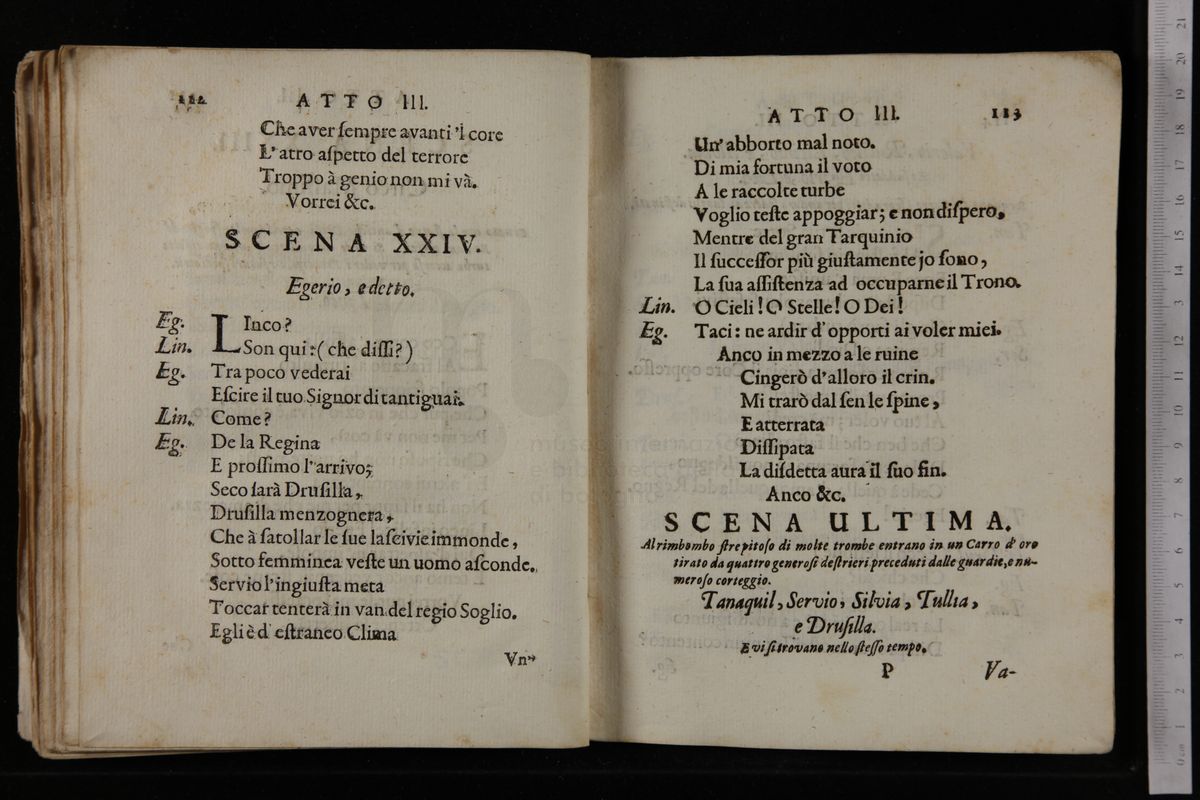 112 ATTO III.
Che aver ſempre avanti 'l core
L'atro aſpetto del terrore
Troppo à genio non mi và.
Vorrei &c.
SCENA XXIV.
Egerio, e detto.
Eg. LInco?
Lin. Son qui: (che diſſi?)
Eg. Tra poco vederai
Eſcire il tuo Signor di tanti guai.
Lin. Come?
Eg. De la Regina
E proſſimo l'arrivo;
Seco ſarà Druſilla,
Druſilla menzognera,
Che à ſatollar le ſue laſcivie immonde,
Sotto femminea veſte un uomo aſconde.
Servio l'ingiuſta meta
Toccar tenterà in van del regio Soglio.
Egli è d' eſtraneo Clima
Vn'
ATTO III. 113
Un' abborto mal noto.
Di mia fortuna il voto
A le raccolte turbe
Voglio teſte appoggiar; e non diſpero,
Mentre del gran Tarquinio
Il ſucceſſor più giuſtamente jo ſono,
La ſua aſſiſtenza ad occuparne il Trono.
Lin. O Cieli! O Stelle! O Dei!
Eg. Taci: ne ardir d' opporti ai voler miei.
Anco in mezzo a le ruine
Cingerò d'alloro il crin.
Mi trarò dal ſen le ſpine,
E atterrata
Diſſipata
La diſdetta aura il ſuo fin.
Anco &c.
SCENA ULTIMA.
Al rimbombo ſtrepitoſo di molte trombe entrano in un Carro d' oro
tirato da quattro generoſi deſtrieri preceduti dalle guardie, e nu-
meroſo corteggio.
Tanaquil, Servio, Silvia, Tullia,
e Druſilla.
E vi ſi trovano nello ſteſſo tempo.
P Va-